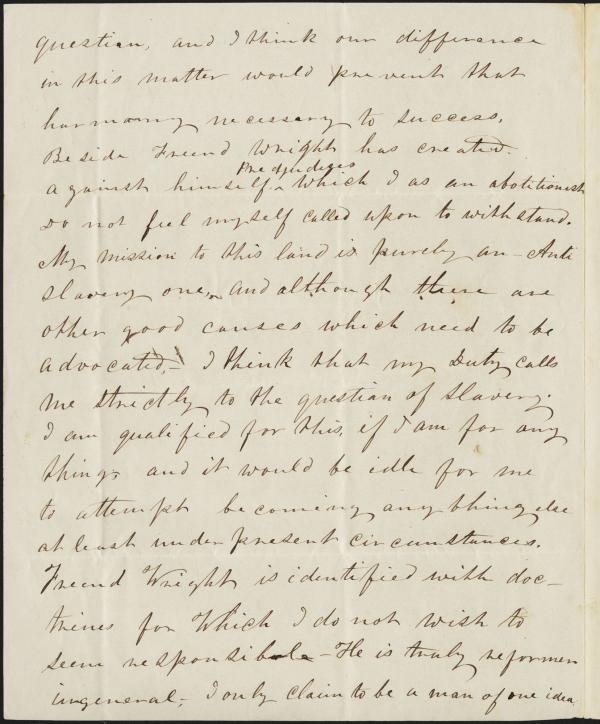 question, and I think our difference
in this matter would prevent that
harmony necessary to success.
Beside Freend Wright has created.
Predjudices
against himself ^ which I as an abolitionist
do not feel myself called upon to withstand.
My mission to this land is purely an - Anti
slavery one, and although there are
other good causes which need to be
advocated, - I think that my Duty calls
me strictly to the question of slavery.
I am qualified for this, if I am for any
thing, and it would be idle for me
to attempt becoming any thing else
at least under present circumstances.
Freend Wright is identified with doc-
trines for which I do not wish to
seem responsible - He is truly reformer
in general, - I only claim to be a man of one idea